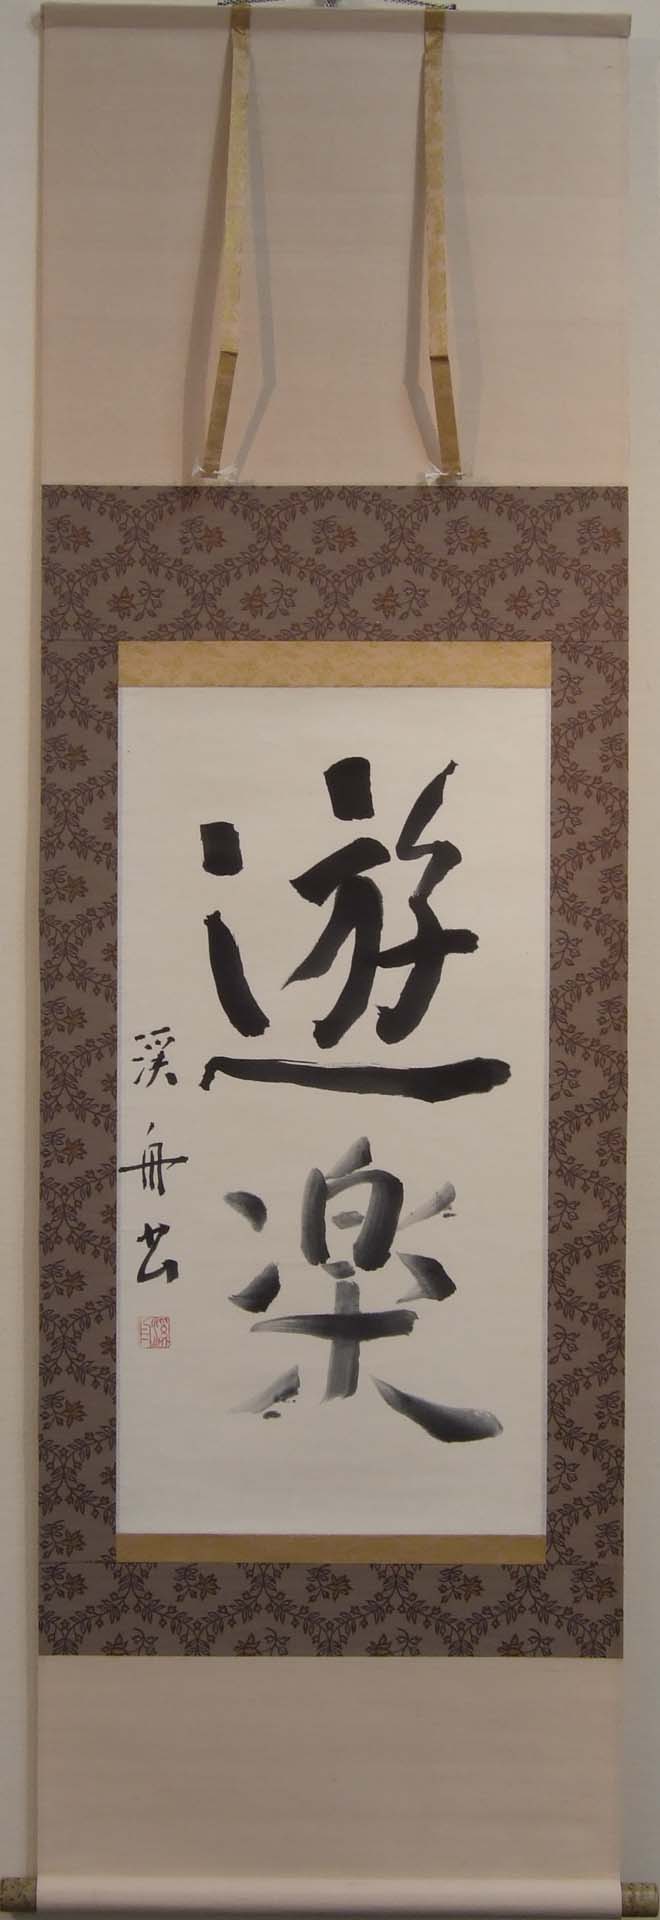 遊楽
渓舟书